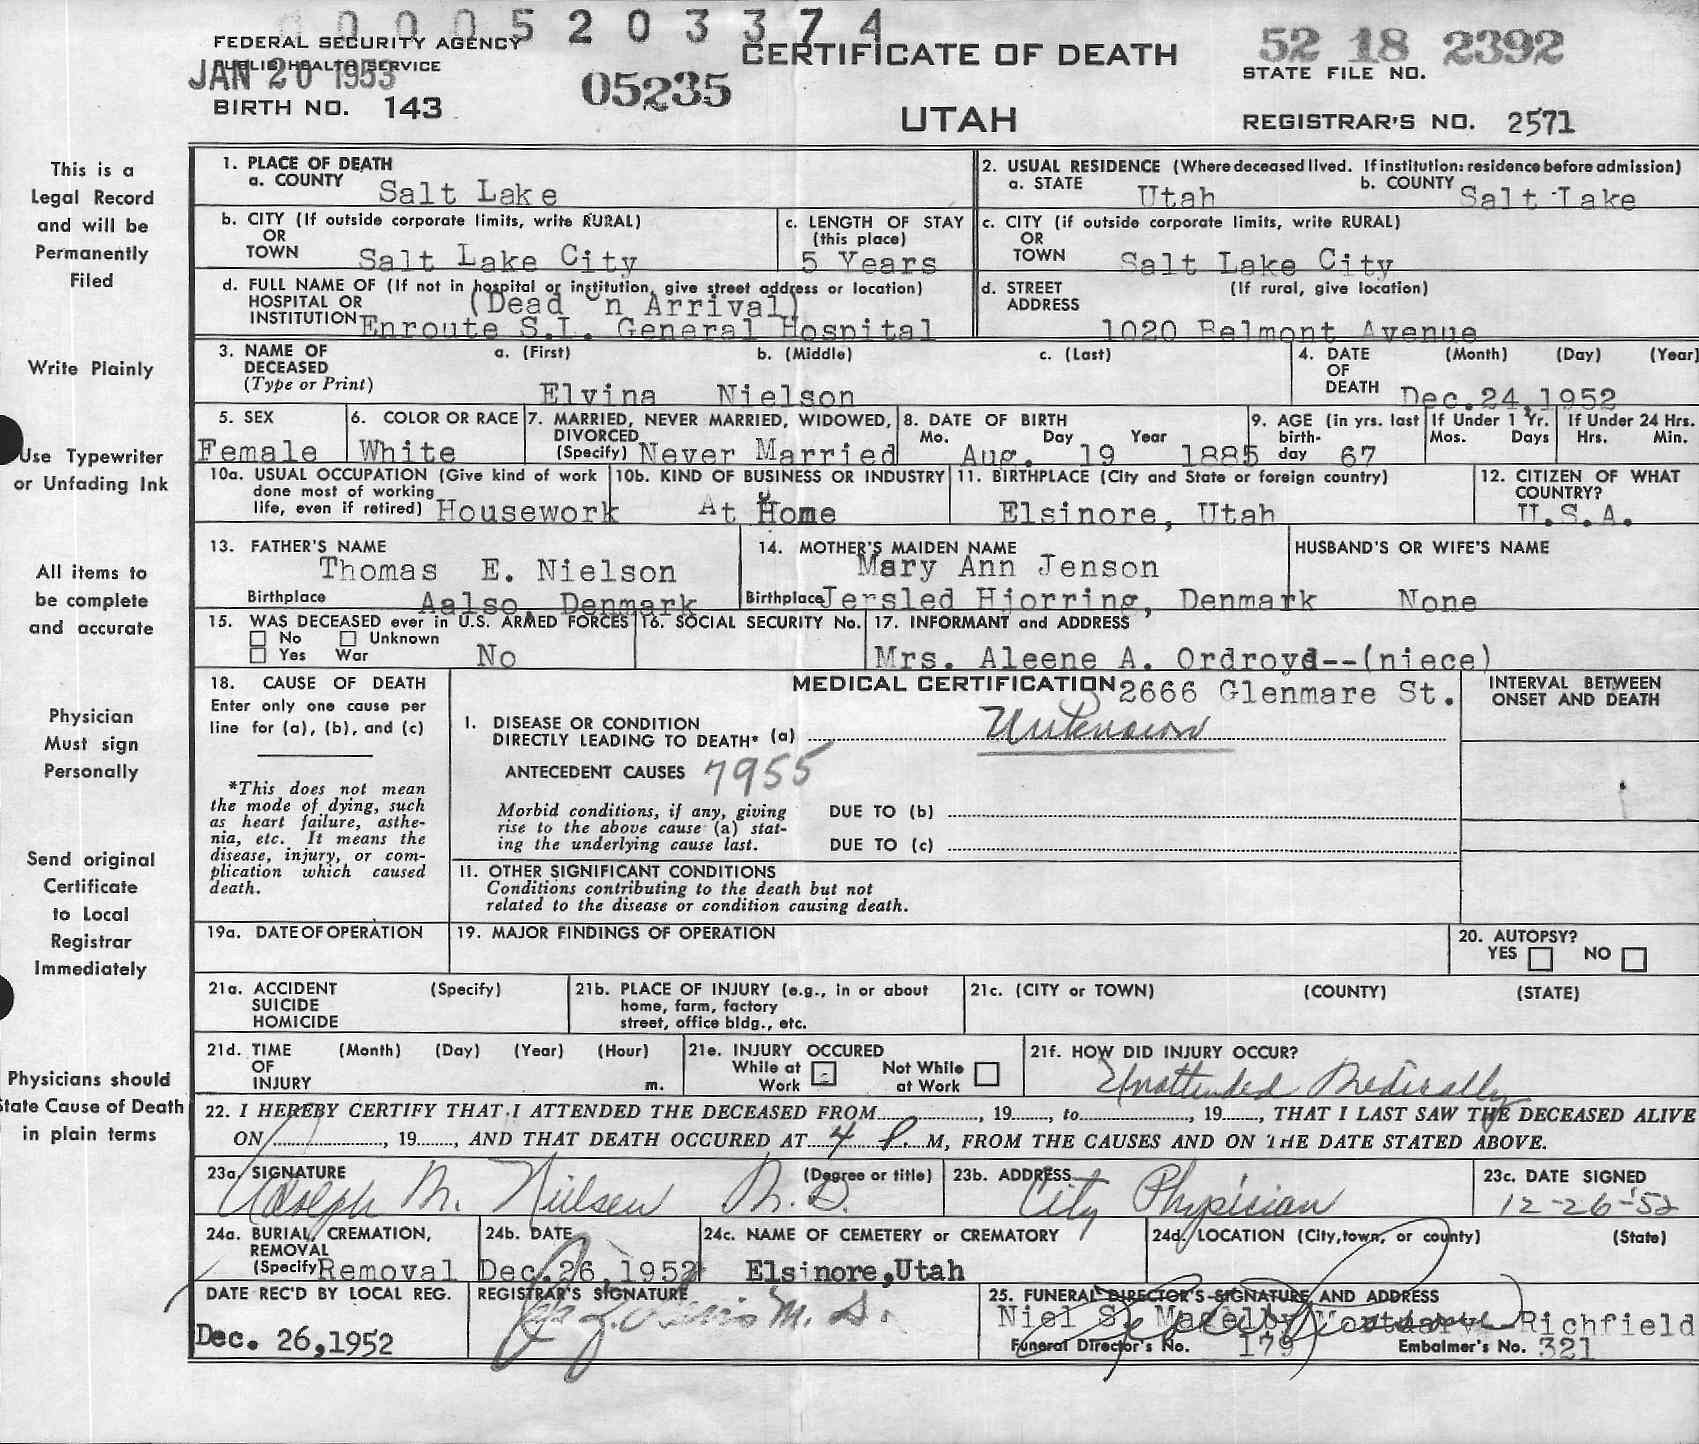 0005203374
FEDERAL SECURITY AGENCY
PUBLIC HEALTH SERVICE
JAN 20 1953
BIRTH NO. 143
05235
CERTIFICATE OF DEATH
UTAH
52 18 2392
STATE FILE NO.
REGISTRAR'S NO. 2571
This is a
Legal Record
and will be
Permanently
Filed
Write Plainly
Use Typewriter
or Unfading Ink
All items to
be complete
and accurate
Physician
Must sign
Personally
Send original
Certificate
to Local
Registrar
Immediately
Physicians should
State Cause of Death
in plain terms
1. PLACE OF DEATH
a. COUNTY Salt Lake
2. USUAL RESIDENCE (Where deceased lived. If institution: residence before admission)
a. STATE Utah b. COUNTY Salt Lake
b. CITY (If outside corporate limits, write RURAL)
OR
TOWN Salt Lake City
c. LENGTH OF STAY
(this place)
5 Years
c. CITY (if outside corporate limits, write RURAL)
OR
TOWN Salt Lake City
d. FULL NAME OF (If not in hospital or institution, give street address or location)
HOSPITAL OR (Dead n Arrival)
INSTITUTION Enroute S.L. General Hospital
d. STREET (If rural, give location)
ADDRESS
1020 Belmont Avenue
3. NAME OF a. (First) b. (Middle) c. (Last)
DECEASED
(Type or Print) Elvina Nielson
4. DATE (Month) (Day) (Year)
OF
DEATH Dec.24,1952
5. SEX
Female
6. COLOR OR RACE
White
7. MARRIED, NEVER MARRIED, WIDOWED,
DIVORCED
(Specify) Never Married
8. DATE OF BIRTH
Mo. Day Year
Aug. 19 1885
9. AGE (in yrs. last
birth-
day 67
If Under 1 Yr.
Mos. Days
If Under 24 Hrs.
Hrs. Min.
10a. USUAL OCCUPATION (Give kind of work
done most of working
life, even if retired) Housework
10b. KIND OF BUSINESS OR INDUSTRY
At Home
11. BIRTHPLACE (City and State or foreign country)
Elsinore, Utah
12. CITIZEN OF WHAT
COUNTRY?
U.S.A.
13. FATHER'S NAME
Thomas E. Nielson
Birthplace Aalso, Denmark
14. MOTHER'S MAIDEN NAME
Mary Ann Jenson
Birthplace Jersled Hjorring, Denmark
HUSBAND'S OR WIFE'S NAME
None
15. WAS DECEASED ever in U.S. ARMED FORCES
No Unknown
Yes War No
16. SOCIAL SECURITY No.
17. INFORMANT and ADDRESS
Mrs. Aleene A. Ordroyd--(niece)
18. CAUSE OF DEATH
Enter only one cause per
line for (a), (b), and (c)
*This does not mean
the mode of dying, such
as heart failure, asthe-
nia, etc. It means the
disease, injury, or com-
plication which caused
death.
MEDICAL CERTIFICATION 2666 Glenmare St.
I. DISEASE OR CONDITION
DIRECTLY LEADING TO DEATH* (a) Unknown
ANTECEDENT CAUSES 7955
Morbid conditions, if any, giving
rise to the above cause (a) stat-
ing the underlying cause last.
DUE TO (b)
DUE TO (c)
INTERVAL BETWEEN
ONSET AND DEATH
11. OTHER SIGNIFICANT CONDITIONS
Conditions contributing to the death but not
related to the disease or condition causing death.
19a. DATE OF OPERATION
19. MAJOR FINDINGS OF OPERATION
20. AUTOPSY?
YES NO
21a. ACCIDENT (Specify)
SUICIDE
HOMICIDE
21b. PLACE OF INJURY (e.g., in or about
home, farm, factory
street, office bldg., etc.
21c. (CITY or TOWN) (COUNTY) (STATE)
21d. TIME (Month) (Day) (Year) (Hour)
OF
INJURY m.
21e. INJURY OCCURED
While at Not While
Work at Work
21f. HOW DID INJURY OCCUR?
Unattended Medically
22. I HEREBY CERTIFY THAT I ATTENDED THE DECEASED FROM , 19 , to , 19 , THAT I LAST SAW THE DECEASED ALIVE
ON , 19 , AND THAT DEATH OCCURED AT 4 P. M, FROM THE CAUSES AND ON THE DATE STATED ABOVE.
23a. SIGNATURE (Degree or title)
Adolph M. Nielsen M.D.
23b. ADDRESS
City Physician
23c. DATE SIGNED
12-26-'52
24a. BURIAL, CREMATION,
REMOVAL
(Specify) Removal
24b. DATE
Dec.26,1952
24c. NAME OF CEMETERY or CREMATORY
Elsinore,Utah
24d. LOCATION (City, town, or county) (State)
DATE REC'D BY LOCAL REG.
Dec. 26,1952
REGISTRAR'S SIGNATURE
M. D.
25. FUNERAL DIRECTOR'S SIGNATURE AND ADDRESS
Niel S. Magelby Mortuary Richfield
Funeral Director's No. 179 Embalmer's No. 321